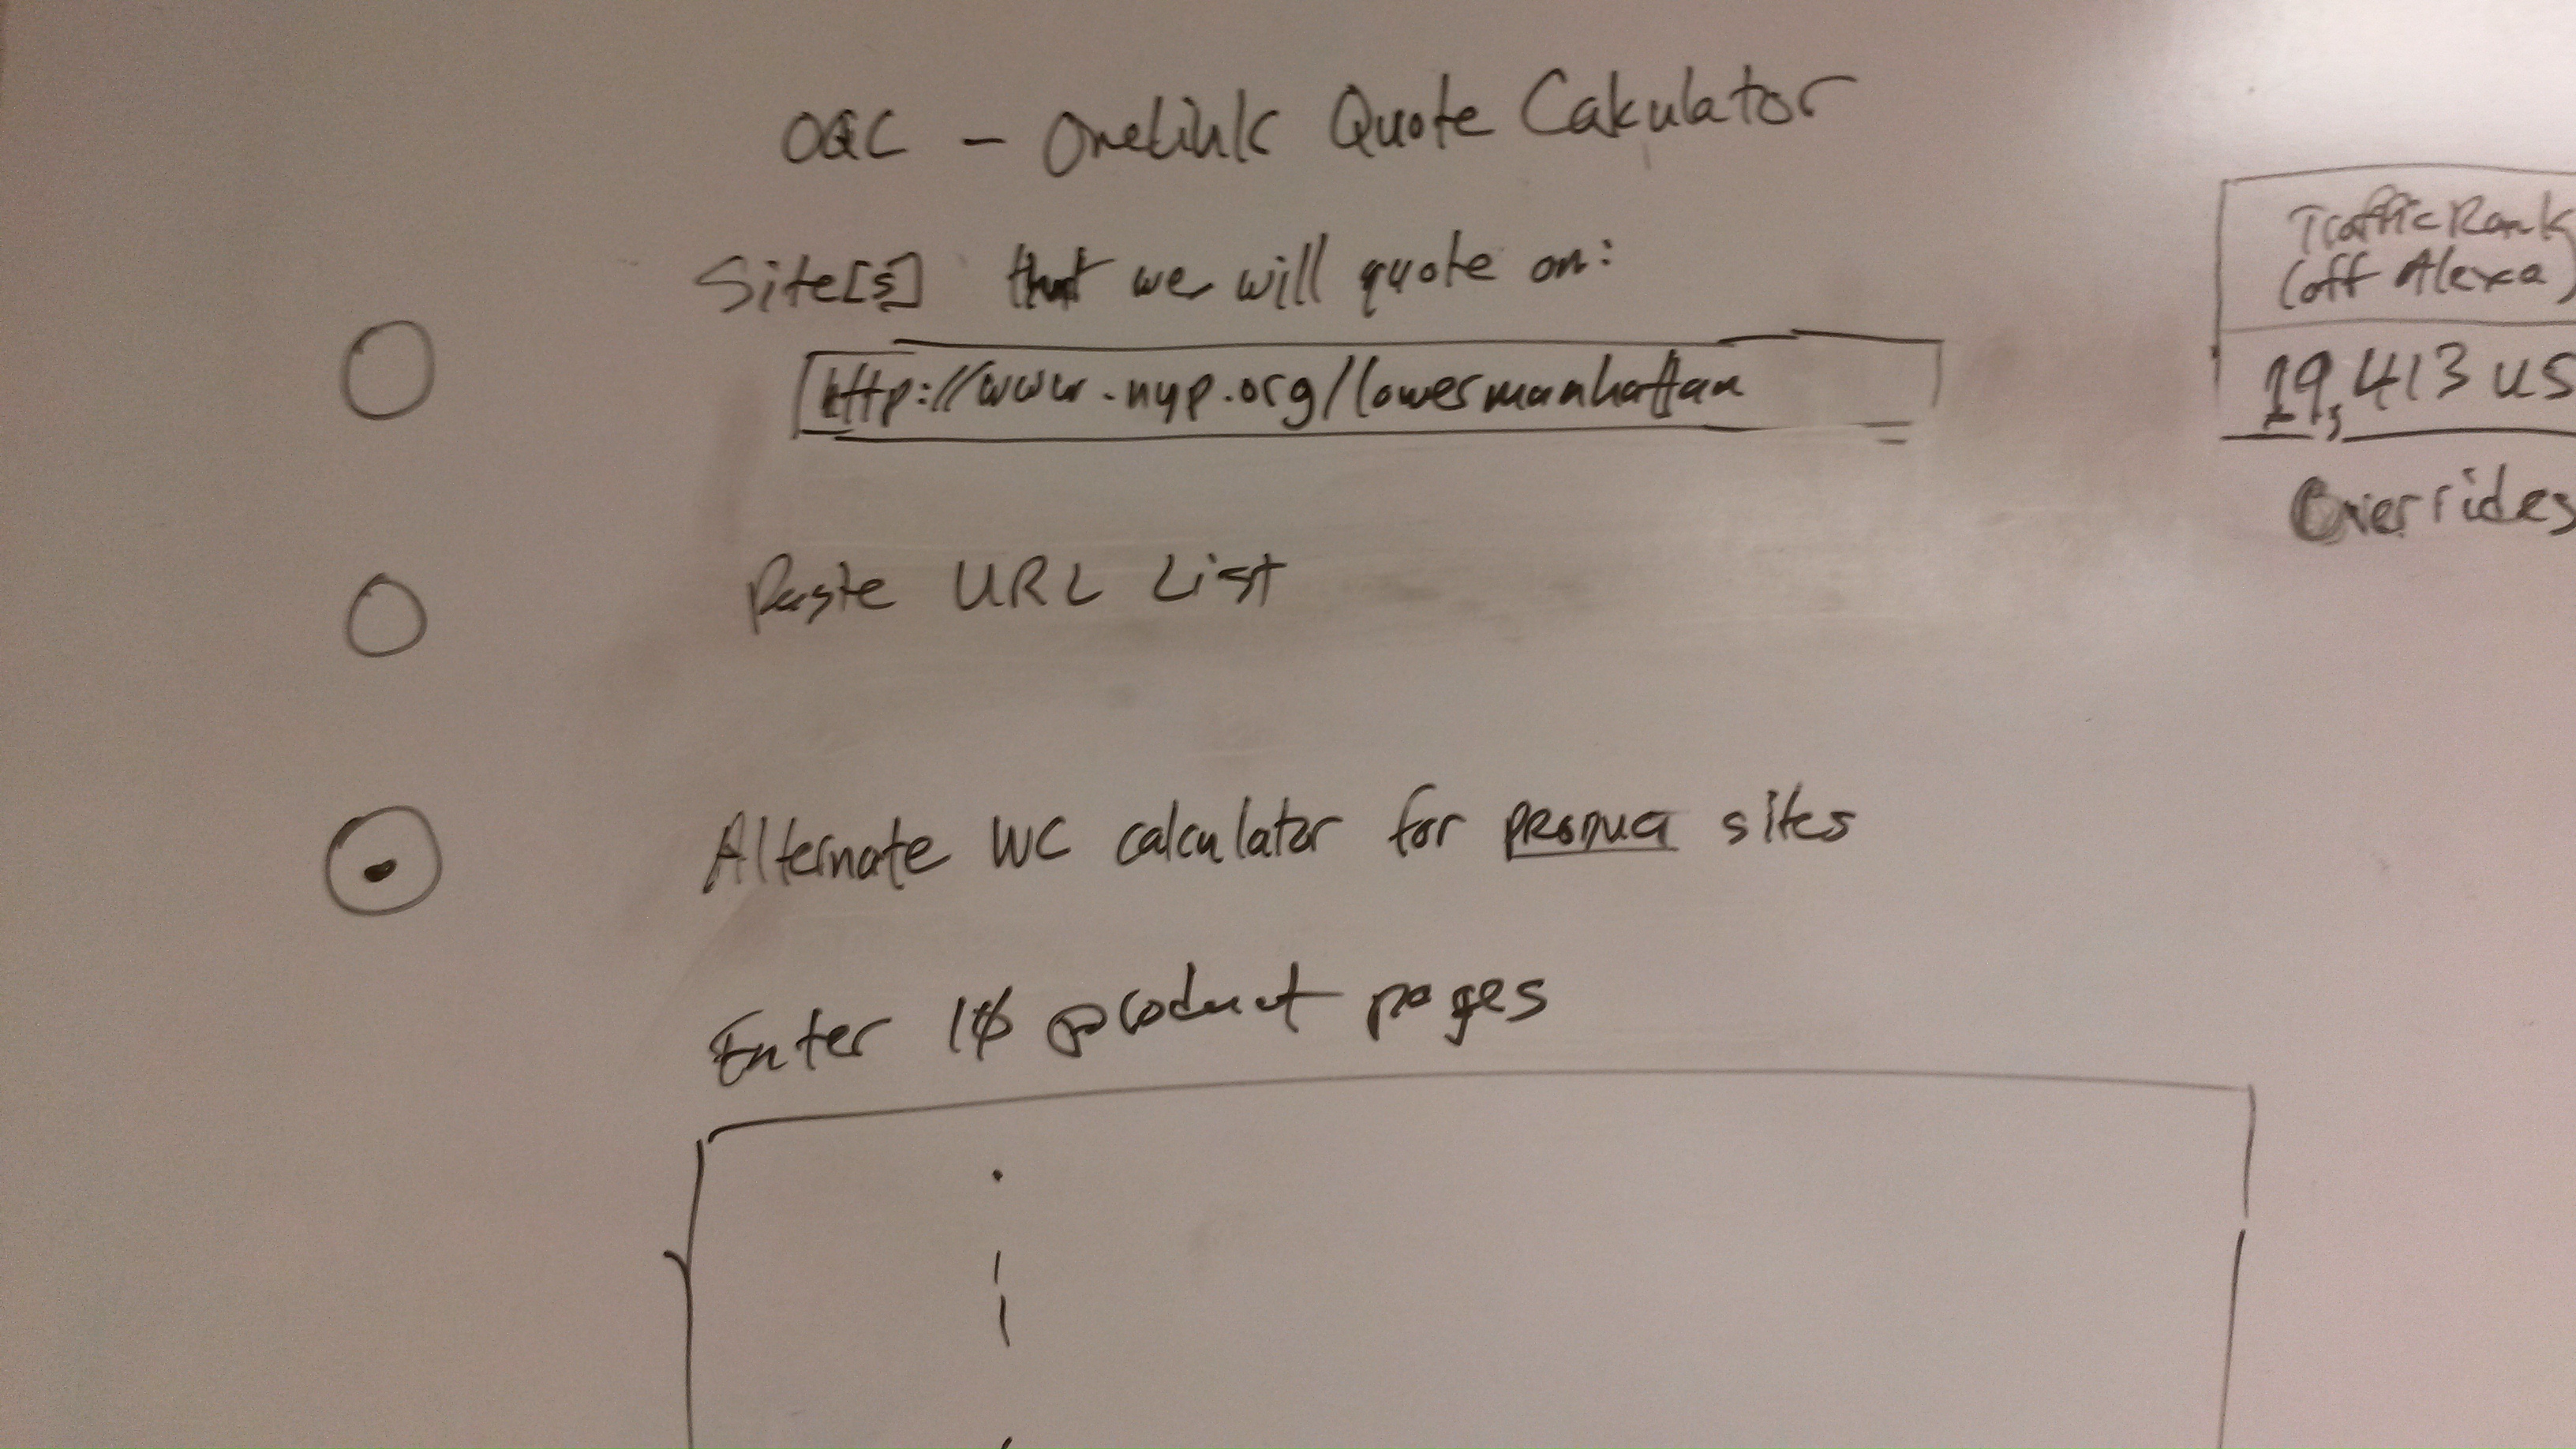 OQC - OneLink Quote Calculator
Site[s] that we will quote on:
http://www.nyp.org/lowermanhattan
Traffic Rank
(off Alexa)
19,413 US
Overrides
Paste URL List
Alternate WC calculator for PRODUCT sites
Enter 10 product pages